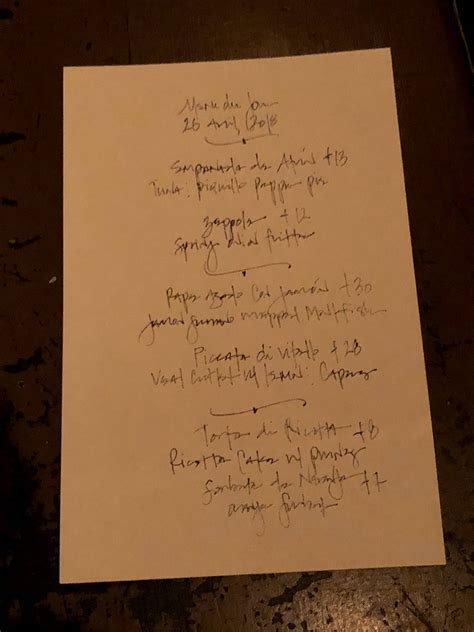 Menu du Jour
25 Avril, 2018
Empanada de Atún +13
Tuna: piquillo Pepper pie
Zeppole +12
Spring onion fritter
Rape asado Con Jamón +30
Jamon Serrano wrapped Monkfish
Piccata di Vitello +28
Veal Cutlet w/ lemon: Capers
Torta di Ricotta +8
Ricotta Cake w/
Sorbete de Naranja +7
orange Sorbet